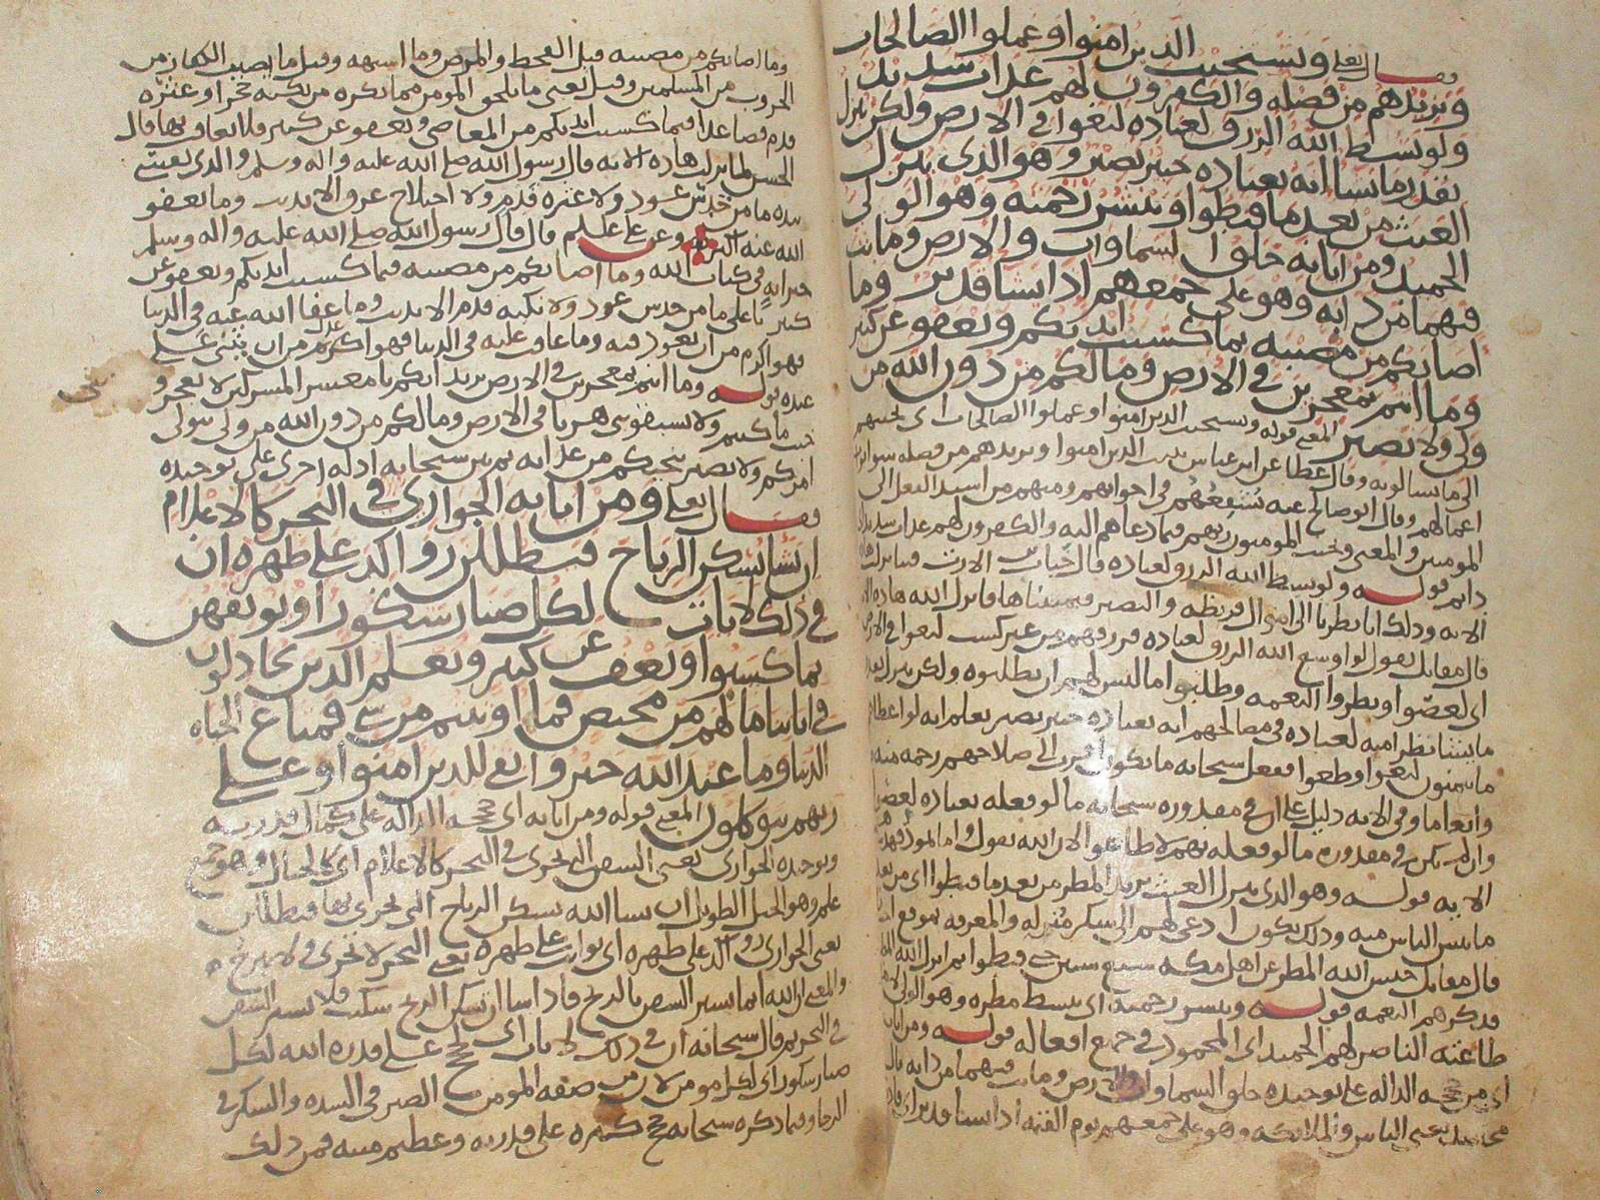 قال تعلى ويستجيب الذين امنوا وعملوا الصالحات
ويزيدهم من فضله والكفرون لهم عذاب شديد
ولو بسط الله الرزق لعباده لبغوا في الارض ولكن ينزل
بقدر ما يشا انه بعباده خبير بصير وهو الذي ينزل
الغيث من بعد ما قنطوا وينشر رحمته وهو الولي
الحميد ومن اياته خلق السماوات والارض وما بث
فيهما من دابه وهو على جمعهم اذا يشا قدير وما
اصابكم من مصيبه بما كسبت ايديكم ويعفو عن كثير
وما انتم بمعجزين في الارض وما لكم من دون الله من
ولي ولا نصير المعنى قوله ويستجيب الذين امنوا وعملوا الصالحات اي يجيبهم
الى ما يسالونه وقال عطا عن ابن عباس يثيب الذين امنوا ويزيدهم من فضله سوا ثواب
اعمالهم وقال ابو صالح عنه يشفعهم في اخوانهم ومنهم من اسند الفعل الى
المومنين والمعنى ويجيب المومنون ربهم فيما دعاهم اليه والكفرون لهم عذاب شديد
دايم قوله ولو بسط الله الرزق لعباده قال خباب بن الارت فينا نزلت هاذه
الايه وذلك انا نظرنا الى اموال قريظه والنضير فتمنيناها فانزل الله هاذه الايه
قال مقاتل يقول لو اوسع الله الرزق لعباده فرزقهم من غير كسب لبغوا في الارض
اي لعصوا وبطروا النعمه وطلبوا ما ليس لهم ان يطلبوه ولكن ينزل بقدر
ما يشا نظرا منه لعباده في مصالحهم انه بعباده خبير بصير يعلم انه لو اعطاهم
ما يتمنون لبغوا وطغوا ففعل سبحانه ما يكون اقرب الى صلاحهم رحمه منه
وانعاما وفي الايه دليل على ان في مقدوره سبحانه ما لو فعله بعباده لعصوا
وان لم يكن في مقدوره ما لو فعله بهم لاطاعوا لان الله يقول واما ثمود فهديناهم
الايه قوله وهو الذي ينزل الغيث يريد المطر من بعد ما قنطوا اي من بعد
ما يئس الناس منه وذلك يكون ادعى لهم الى شكر منزله والمعرفه بموقع انعامه
قال مقاتل حبس الله المطر عن اهل مكه سبع سنين حتى قنطوا ثم انزل الله المطر
فذكرهم النعمه قوله وينشر رحمته اي يبسط مطره وهو الولي لاهل
طاعته الناصر لهم الحميد اي المحمود في جميع افعاله قوله ومن اياته
اي من حججه الداله على توحيده خلق السماوات والارض وما بث فيهما من دابه قال
مجاهد يعني الناس والملائكه وهو على جمعهم يوم القيمه اذا يشا قدير اي قادر
وما اصابكم من مصيبه قيل القحط والمرض وما اشبهه وقيل ما يصيب الكفار من
الحروب من المسلمين وقيل يعني ما يلحق المومن مما يكره من نكبه حجر او عثره
قدم فصاعدا فبما كسبت ايديكم من المعاصي ويعفو عن كثير فلا يعاقب بها قال
الحسن لما نزلت هاذه الايه قال رسول الله صلى الله عليه واله وسلم والذي نفسي
بيده ما من خدش عود ولا عثره قدم ولا اختلاج عرق الا بذنب وما يعفو
الله عنه اكثر وعن علي علم قال قال رسول الله صلى الله عليه واله وسلم
خير ايه في كتاب الله وما اصابكم من مصيبه فبما كسبت ايديكم ويعفو عن
كثير يا علي ما من خدش عود ولا نكبه قدم الا بذنب وما عفا الله عنه في الدنيا
فهو اكرم من ان يعود فيه وما عاقب عليه في الدنيا فهو اكرم من ان يثني على
عبده قوله وما انتم بمعجزين في الارض يريد انكم يا معشر المشركين لا تعجزوني
حيث ما كنتم ولا تسبقوني هربا في الارض وما لكم من دون الله من ولي يتولى
امركم ولا نصير ينجيكم من عذابه ثم بين سبحانه ادله اخرى على توحيده
فقال تعلى ومن اياته الجواري في البحر كالاعلام
ان يشا يسكن الرياح فيظللن رواكد على ظهره ان
في ذلك لايات لكل صبار شكور او يوبقهن
بما كسبوا ويعف عن كثير ويعلم الذين يجادلون
في اياتنا ما لهم من محيص فما اوتيتم من شي فمتاع الحياه
الدنيا وما عند الله خير وابقى للذين امنوا وعلى
ربهم يتوكلون المعنى قوله ومن اياته اي حججه الداله على كمال قدرته
وتوحيده الجواري يعني السفن التي تجري في البحر كالاعلام اي كالجبال وهو جمع
علم وهو الجبل الطويل ان يشا الله يسكن الرياح التي تجري بها فيظللن
يعني الجواري رواكد على ظهره اي ثوابت على ظهره يعني البحر لا تجري ولا تبرح
والمعنى ان الله انما يسير السفن بالريح فاذا شا ان يسكن الريح سكنت فلا تسير السفن
في البحر ثم قال سبحانه ان في ذلك لايات اي لحجج على قدره الله لكل
صبار شكور اي لكل مومن لان من صفه المومن الصبر في الشده والشكر في
الرخا وفيما ذكره سبحانه حجج كثيره على قدرته وعظيم منته فمن ذلك